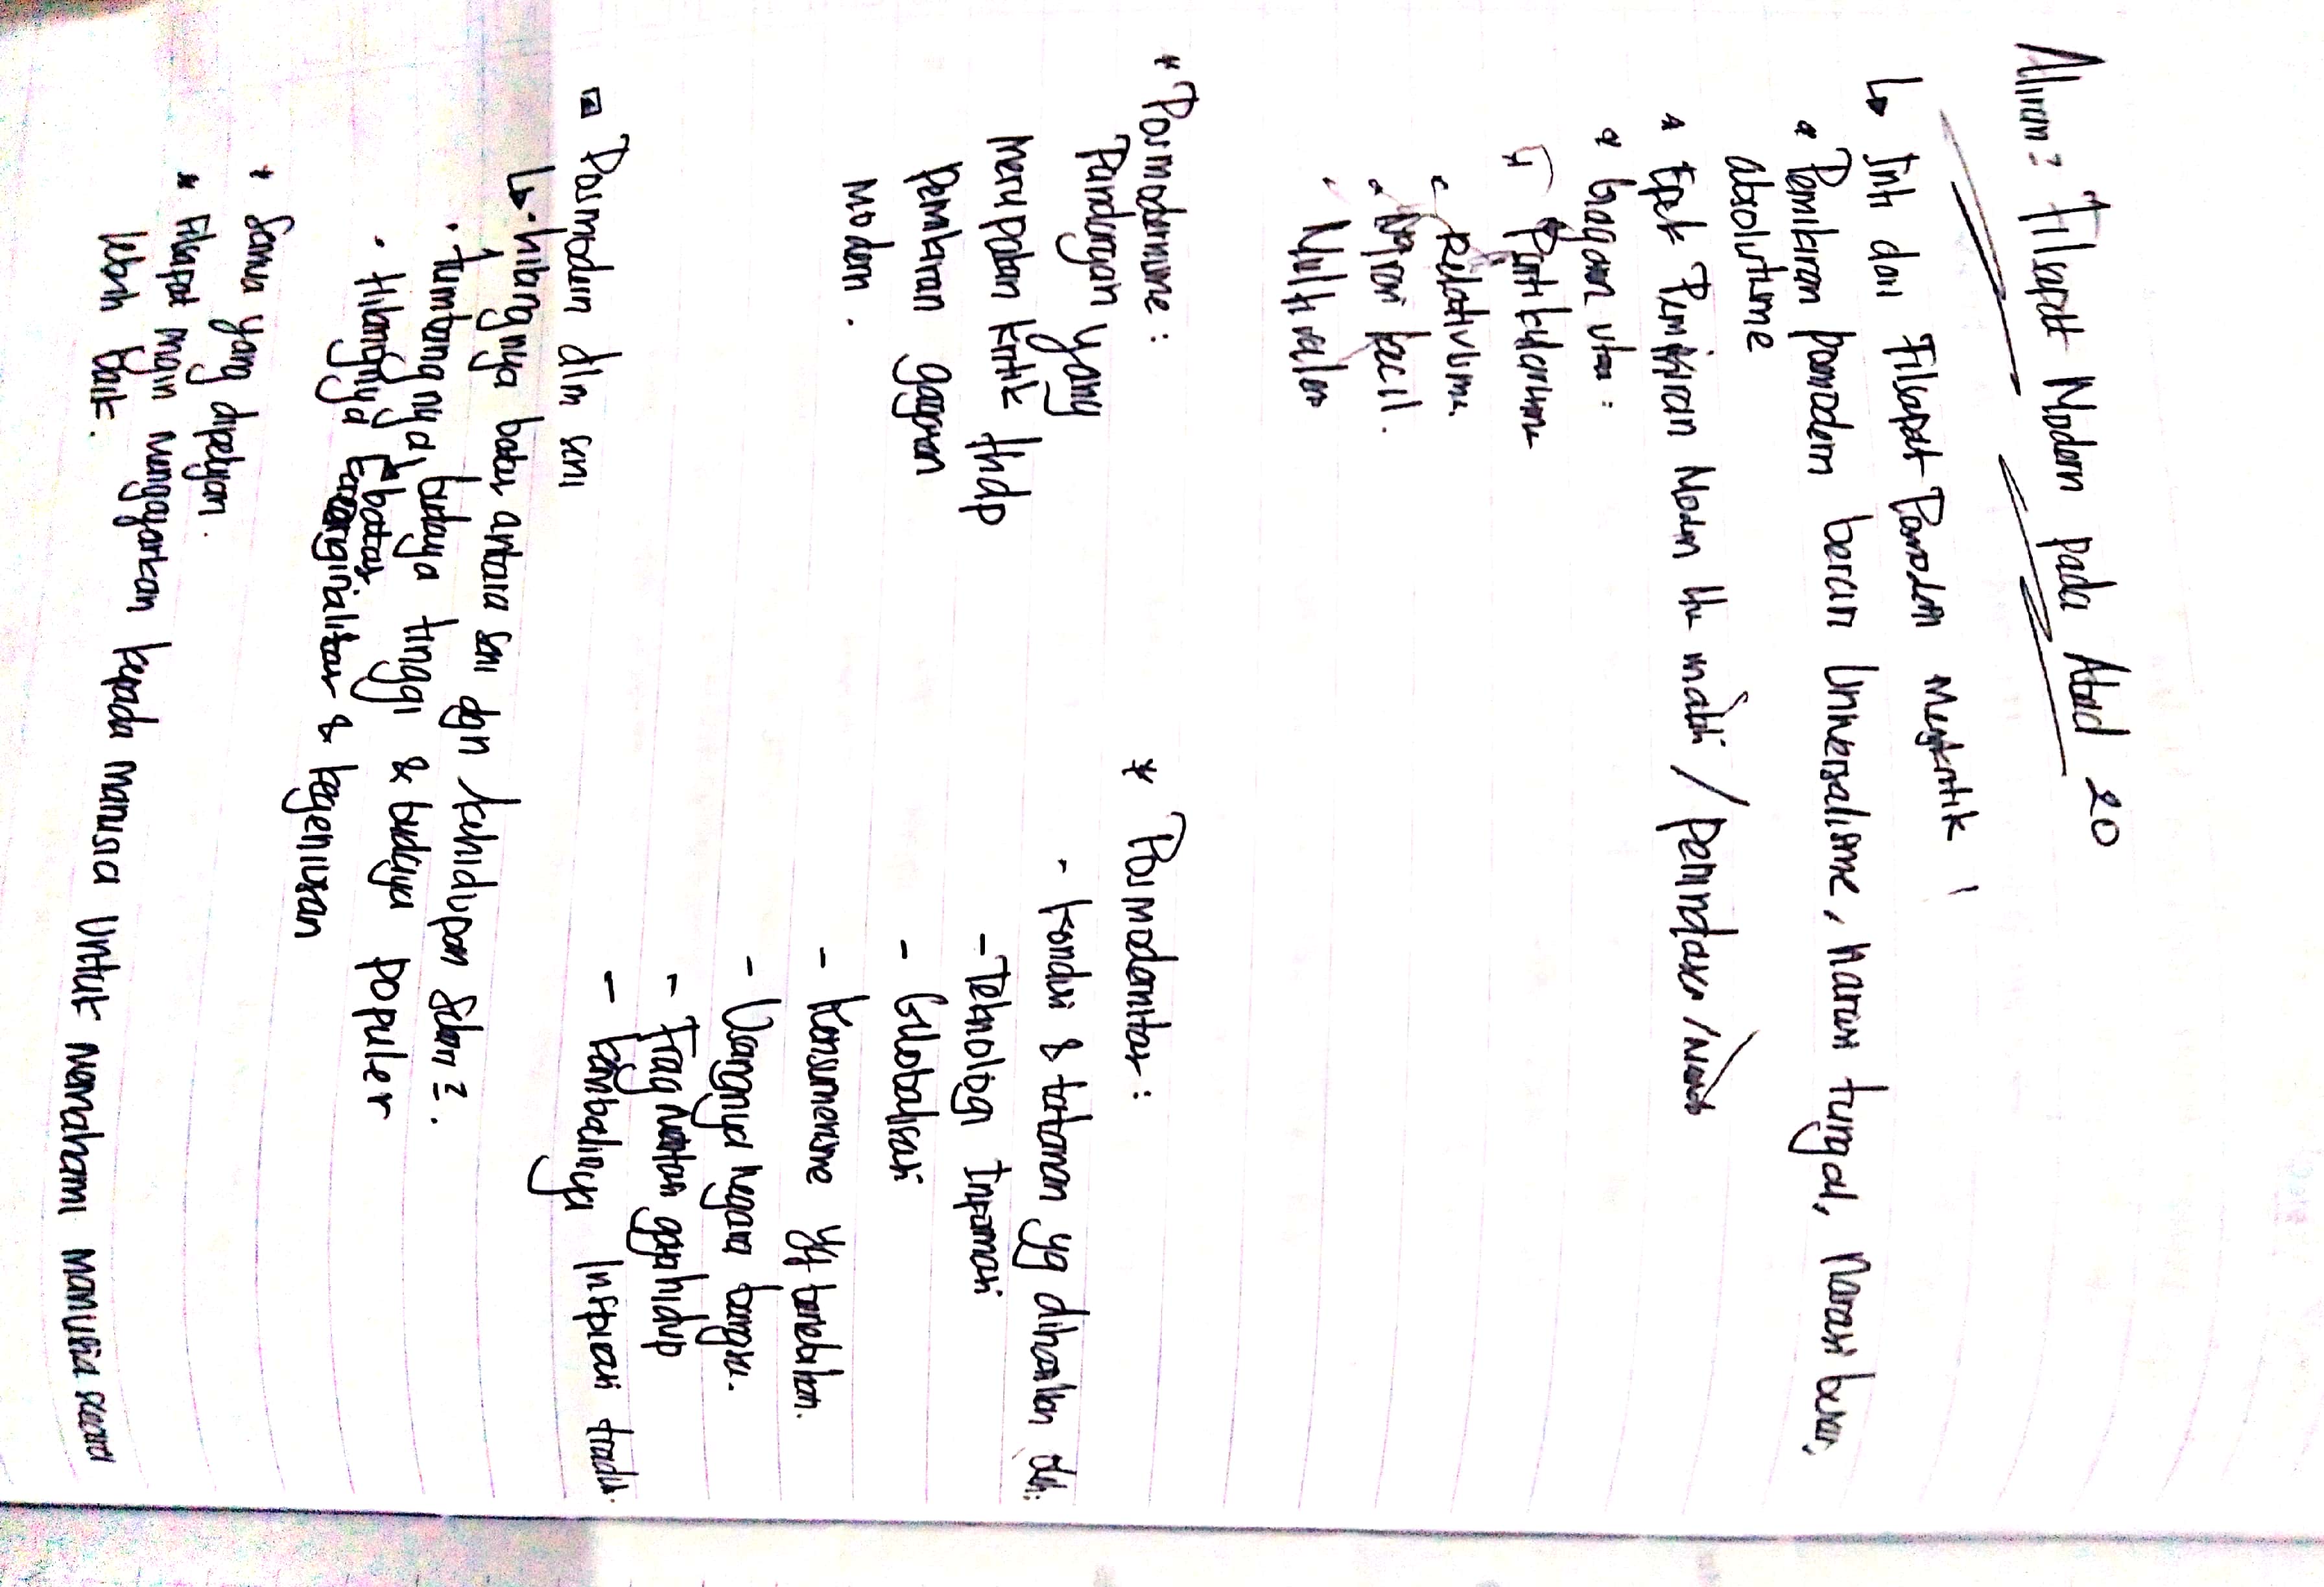 Aliran: Filsapat Modern pada Abad 20
↳ Inti dari Filsapat Posmodern Mengkritik
* Pemikiran posmodern beraru Universalisme, Narasi tunggal, Narasi besar,
absolutisme
* Efek Pemikiran Modern itu mati / Penindasan
* Gagasan utama:
* Partikularisme
Relativisme
Narasi kecil.
Nilai
* Posmodernisme:
Pandangan yang
Merupakan kritik thdp
Pemikiran gagasan
Modern.
* Posmodernitas:
- Kondisi & tatanan yg dihasilkan
- Teknologi Informasi
- Globalisasi
- Konsumerisme yg berlebihan.
- Usangnya negara bangsa.
- Fragmentasi gaya hidup
- Kembalinya Inspirasi tradisi.
▫ Posmodern dlm seni
↳ • hilangnya batas antara seni dgn kehidupan sehari².
• Tumbangnya budaya tinggi & budaya populer
• Hilangnya batas orginalitas & kegeniusan
* Semua yang dipelajari.
* Filsapat ingin mengajarkan kepada manusia Untuk memahami manusia secara
lebih baik.